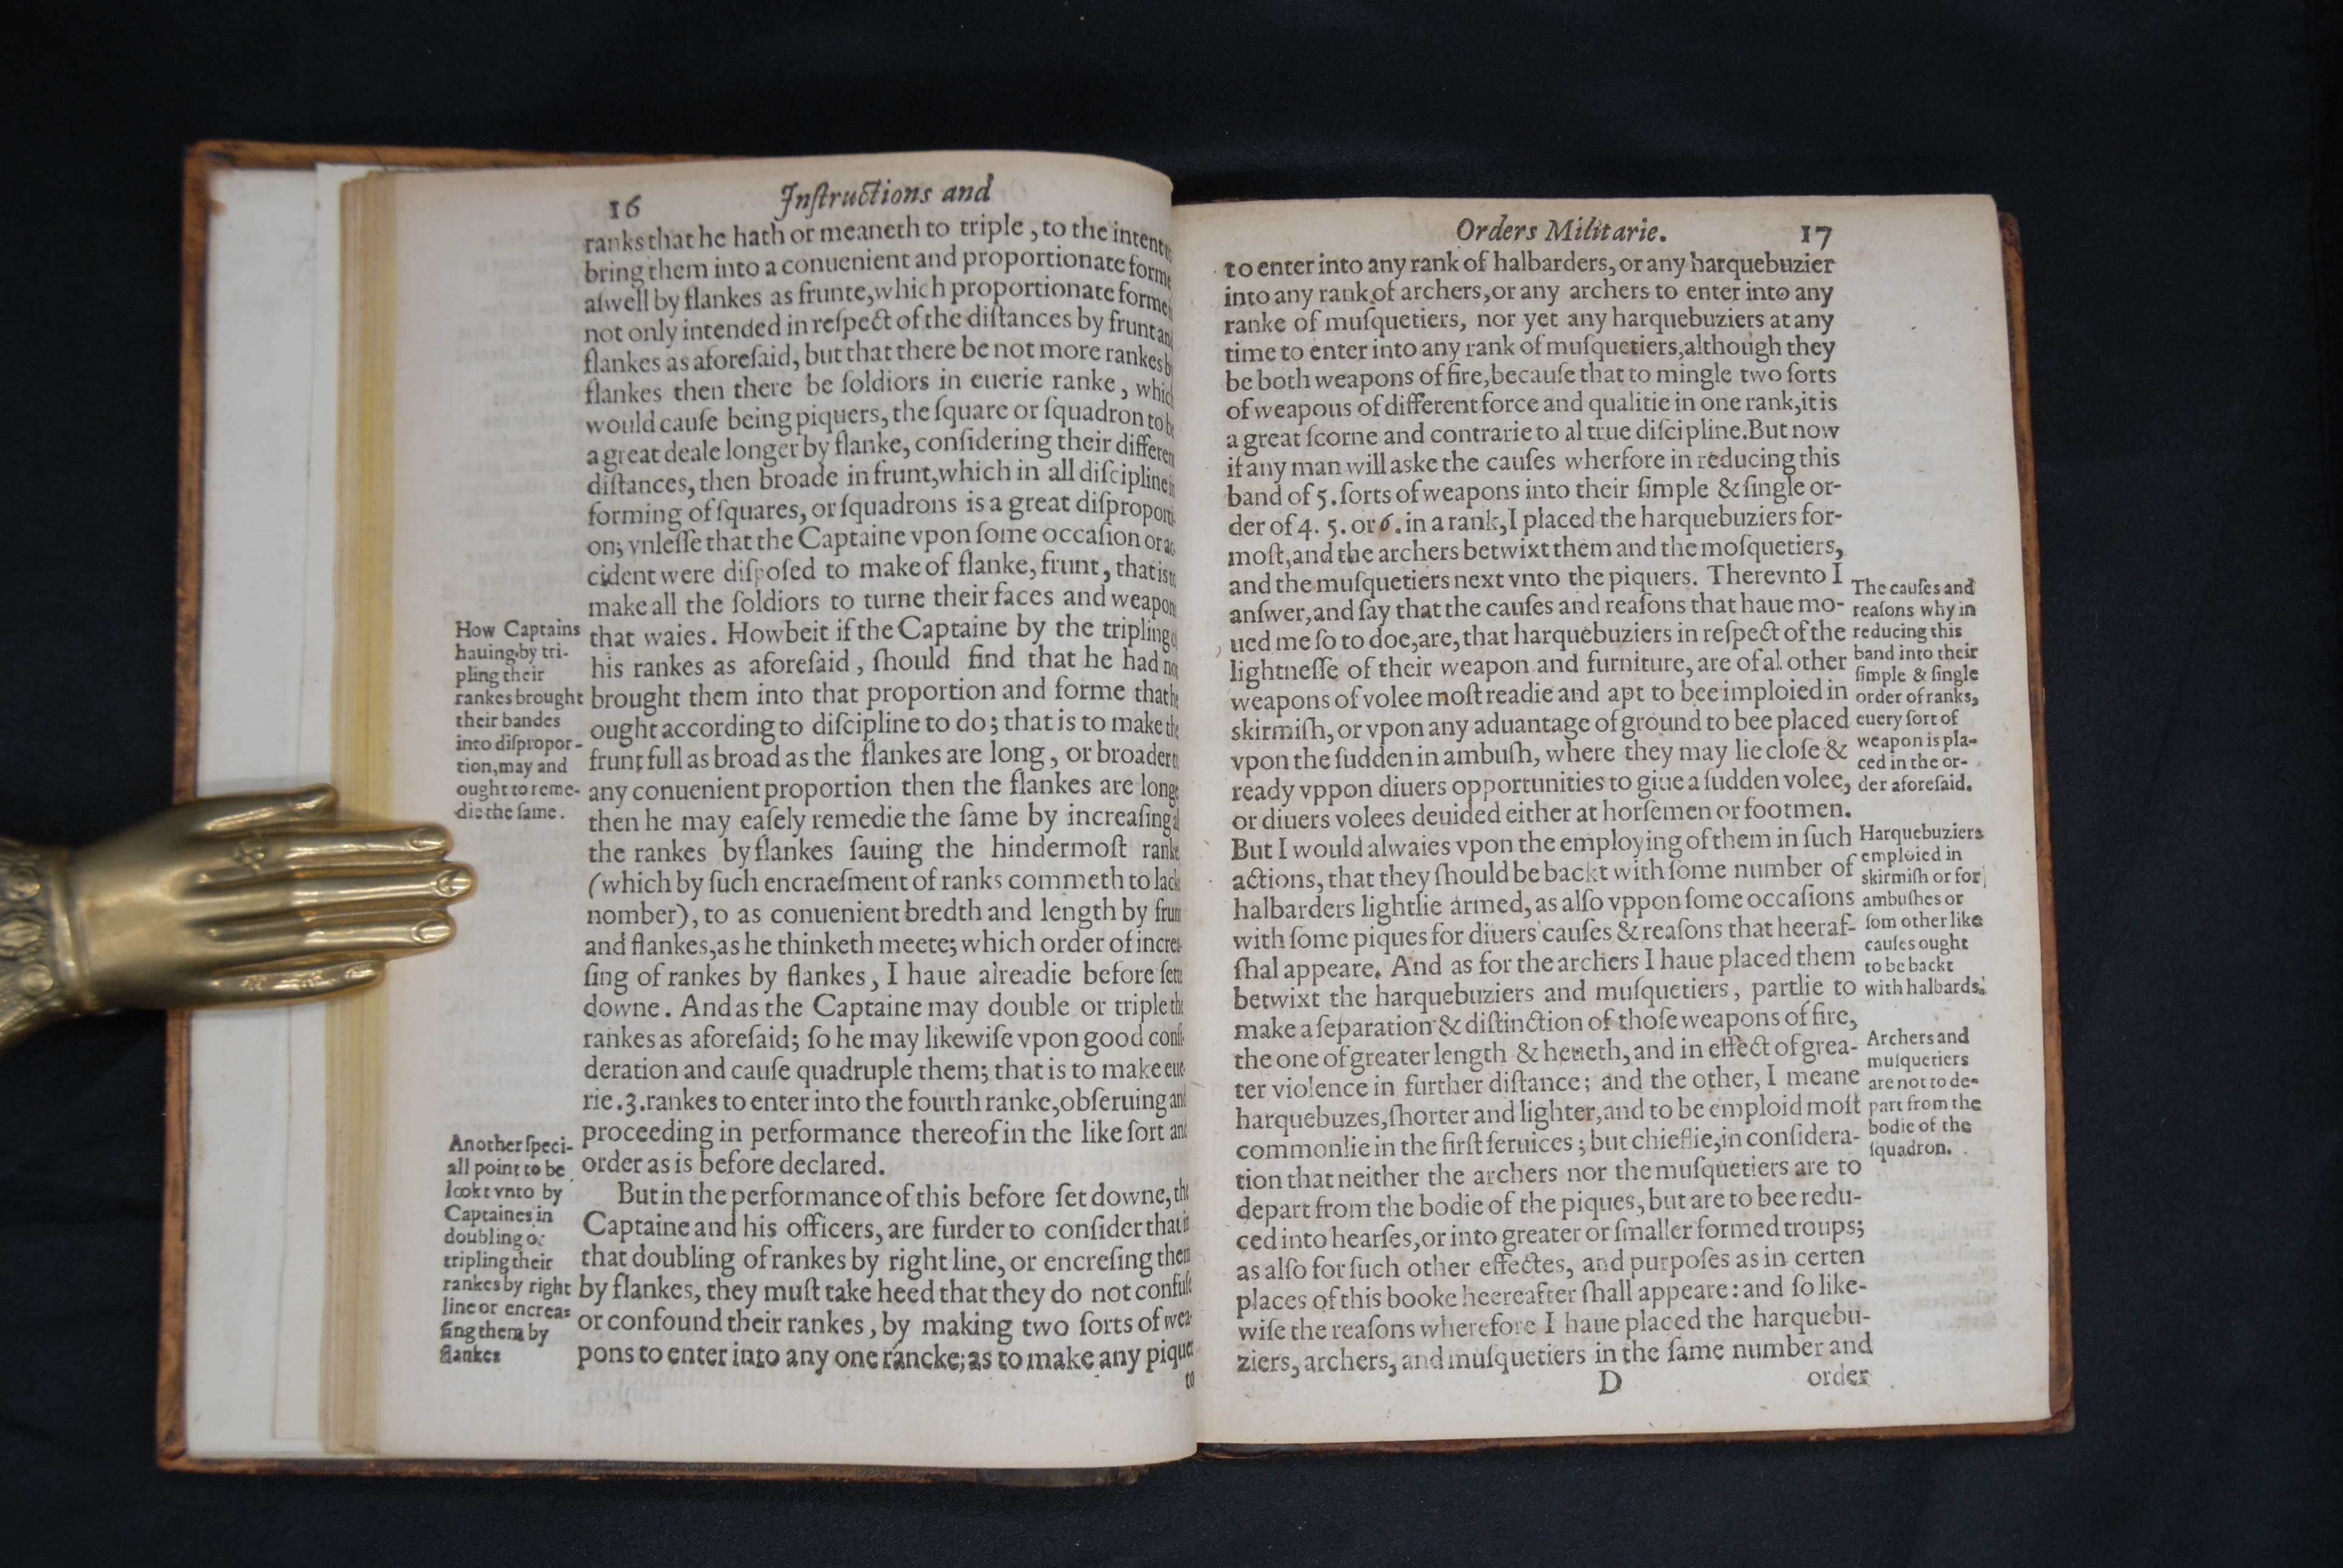 16 Inſtructions and
ranks that he hath or meaneth to triple, to the intent
bring them into a conuenient and proportionate forme
aſwell by flankes as frunte, which proportionate forme
not only intended in reſpect of the diſtances by frunt and
flankes as aforeſaid, but that there be not more rankes
flankes then there be ſoldiors in euerie ranke, which
would cauſe being piquers, the ſquare or ſquadron to
a great deale longer by flanke, conſidering their differen
diſtances, then broade in frunt, which in all diſcipline
forming of ſquares, or ſquadrons is a great diſproporti
on; vnleſſe that the Captaine vpon ſome occaſion or ac
cident were diſpoſed to make of flanke, frunt, that is
make all the ſoldiors to turne their faces and weapon
that waies. Howbeit if the Captaine by the tripling
his rankes as aforeſaid, ſhould find that he had
brought them into that proportion and forme that
ought according to diſcipline to do; that is to make the
frunt full as broad as the flankes are long, or broader
any conuenient proportion then the flankes are long
then he may eaſely remedie the ſame by increaſing
the rankes by flankes ſauing the hindermoſt ranke
(which by ſuch encraeſment of ranks commeth to lack
nomber), to as conuenient bredth and length by frun
and flankes, as he thinketh meete; which order of increa-
ſing of rankes by flankes, I haue alreadie before ſette
downe. And as the Captaine may double or triple the
rankes as aforeſaid; ſo he may likewiſe vpon good conſi-
deration and cauſe quadruple them; that is to make eue-
rie .3. rankes to enter into the fourth ranke, obſeruing and
proceeding in performance thereof in the like ſort and
order as is before declared.
But in the performance of this before ſet downe, the
Captaine and his officers, are furder to conſider that in
that doubling of rankes by right line, or encreſing them
by flankes, they muſt take heed that they do not confuſe
or confound their rankes, by making two ſorts of wea-
pons to enter into any one rancke; as to make any pique
to
How Captains
hauing by tri-
pling their
rankes brought
their bandes
into diſpropor-
tion, may and
ought to reme-
die the ſame.
Another ſpeci-
all point to be
lookt vnto by
Captaines in
doubling or
tripling their
rankes by right
line or encrea-
ſing them by
flankes
Orders Militarie. 17
to enter into any rank of halbarders, or any harquebuzier
into any rank of archers, or any archers to enter into any
ranke of muſquetiers, nor yet any harquebuziers at any
time to enter into any rank of muſquetiers, although they
be both weapons of fire, becauſe that to mingle two ſorts
of weapous of different force and qualitie in one rank, it is
a great ſcorne and contrarie to al true diſcipline. But now
if any man will aske the cauſes wherfore in reducing this
band of 5. ſorts of weapons into their ſimple & ſingle or-
der of 4. 5. or 6. in a rank, I placed the harquebuziers for-
moſt, and the archers betwixt them and the moſquetiers,
and the muſquetiers next vnto the piquers. Therevnto I
anſwer, and ſay that the cauſes and reaſons that haue mo-
ued me ſo to doe, are, that harquebuziers in reſpect of the
lightneſſe of their weapon and furniture, are of al other
weapons of volee moſt readie and apt to bee imploied in
skirmiſh, or vpon any aduantage of ground to bee placed
vpon the ſudden in ambuſh, where they may lie cloſe &
ready vppon diuers opportunities to giue a ſudden volee,
or diuers volees deuided either at horſemen or footmen.
But I would alwaies vpon the employing of them in ſuch
actions, that they ſhould be backt with ſome number of
halbarders lightlie armed, as alſo vppon ſome occaſions
with ſome piques for diuers cauſes & reaſons that heeraf-
ſhal appeare. And as for the archers I haue placed them
betwixt the harquebuziers and muſquetiers, partlie to
make a ſeparation & diſtinction of thoſe weapons of fire,
the one of greater length & heueth, and in effect of grea-
ter violence in further diſtance; and the other, I meane
harquebuzes, ſhorter and lighter, and to be emploid moſt
commonlie in the firſt ſeruices; but chieflie, in conſidera-
tion that neither the archers nor the muſquetiers are to
depart from the bodie of the piques, but are to bee redu-
ced into hearſes, or into greater or ſmaller formed troups;
as alſo for ſuch other effectes, and purpoſes as in certen
places of this booke heereafter ſhall appeare: and ſo like-
wiſe the reaſons wherefore I haue placed the harquebu-
ziers, archers, and muſquetiers in the ſame number and
D order
The cauſes and
reaſons why in
reducing this
band into their
ſimple & ſingle
order of ranks,
euery ſort of
weapon is pla-
ced in the or-
der aforeſaid.
Harquebuziers
emploied in
skirmiſh or for
ambuſhes or
ſom other like
cauſes ought
to be backt
with halbards.
Archers and
muſquetiers
are not to de-
part from the
bodie of the
ſquadron.